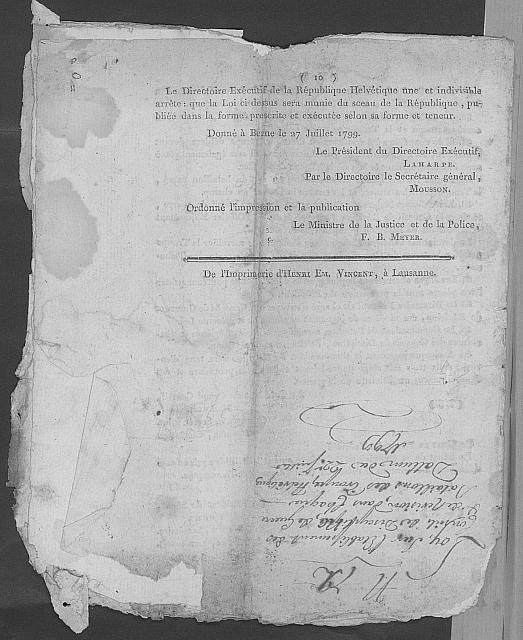 ( 10 )
Le Directoire Exécutif de la République Helvétique une et indivisible
arrête : que la Loi ci dessus sera munie du sceau de la République , pu-
bliée dans la forme prescrite et exécutée selon sa forme et teneur.
Donné à Berne le 27 Juillet 1799.
Le Président du Directoire Exécutif,
LAHARPE.
Par le Directoire le Secrétaire général,
MOUSSON.
Ordonné l'impression et la publication
Le Ministre de la Justice et de la Police,
F. B. MEYER.
De l'Imprimerie d'HENRI EM. VINCENT, à Lausanne.
Loy, sur l'Etablissement des
Conseils de Discipline, de Guerre
& de Revision, dans chaque
Bataillons des troupes
1799